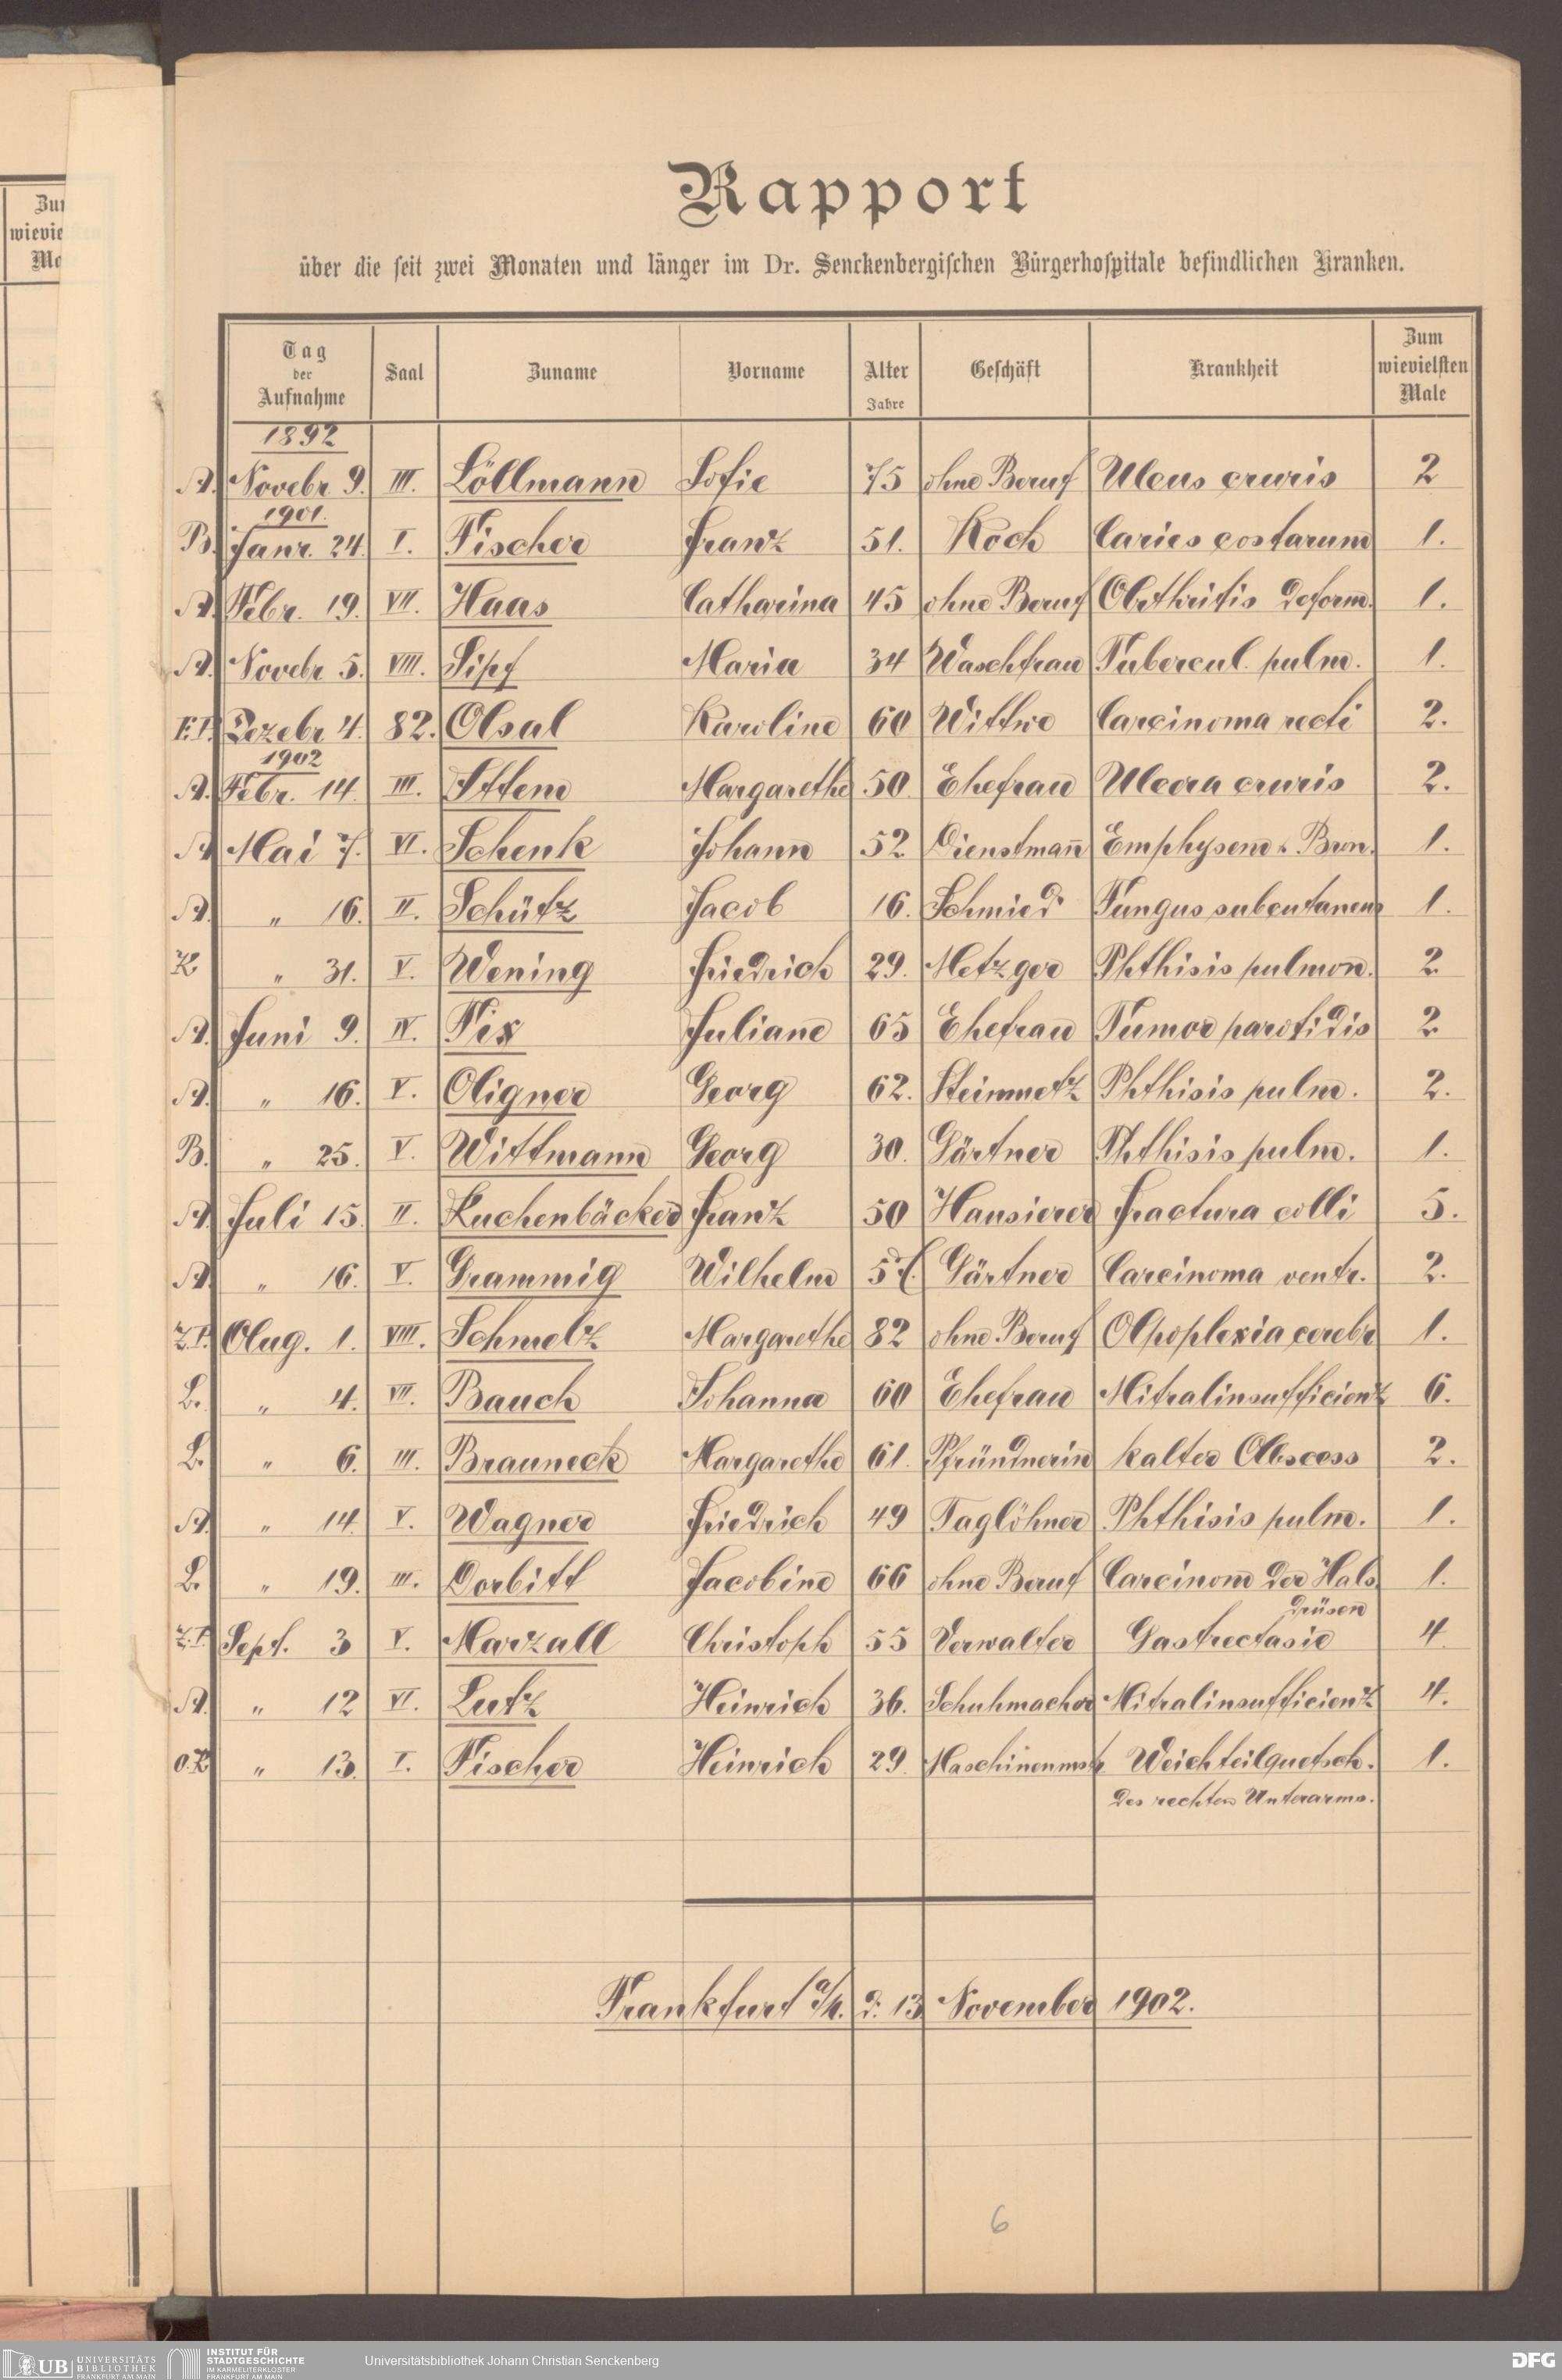 Zum
wievielsten
Ma
Rapport
über die seit zwei Monaten und länger im Dr. Senckenbergischen Bürgerhospitale befindlichen Kranken.
Tag der Aufnahme Saal Zuname Vorname Alter Jahre Geschäft Krankheit Zum wievielsten Male
1892
A. Novebr 9. III. Löllmann Sofie 75 ohne Beruf Ulcus cruris 2
1901.
B. Janr. 24. I. Fischer Franz 51. Koch Caries costarum 1.
A. Febr. 19. VII. Haas Catharina 45 ohne Beruf Arthritis deform. 1.
A. Novebr 5. VIII. Sipf Maria 34 Waschfrau Tubercul. pulm. 1.
Dezebr 4. 82. Absal Karoline 60 Wittwe Carcinoma recti 2.
1902
A. Febr. 14. III. Ittem Margarethe 50 Ehefrau Ulcera cruris 2.
A. Mai 7. VI. Schenk Johann 52 Dienstmann Emphysem & Bron. 1.
A. " 16. II. Schütz Jacob 16. Schmied Fungus subcutaneus 1.
K " 31. V. Wening Friedrich 29. Metzger Phthisis pulmon. 2
A. Juni 9. IV. Fix Juliane 65 Ehefrau Tumor parotidis 2
A. " 16. V. Aligner Georg 62. Steinmetz Phthisis pulm. 2.
B. " 25. V. Wittmann Georg 30. Gärtner Phthisis pulm. 1.
A. Juli 15. II. Kuchenbäcker Franz 50 Hausierer Fractura colli 5.
A. " 16. V. Grammig Wilhelm Gärtner Carcinoma ventr. 2.
Z.P. Aug. 1. VIII. Schmelz Margarethe 82 ohne Beruf Apoplexia cerebr 1.
L. " 4. VII. Bauch Johanna 60 Ehefrau Mitralinsufficienz 6.
L. " 6. III. Brauneck Margarethe 61. Pfründnerin kalter Abscess 2.
A. " 14. V. Wagner Friedrich 49 Taglöhner Phthisis pulm. 1.
L. " 19. III. Dorbitt Jacobine 66 ohne Beruf Carcinom der Hals 1.
drüsen
Z.P. Sept. 3 V. Marzall Christoph 55 Verwalter Gastrectasie 4.
A. " 12 VI. Lutz Heinrich 36. Schuhmacher Mitralinsufficienz 4.
O.K " 13. I. Fischer Heinrich 29. Maschinenmstr Weichteilquetsch. 1.
des rechten Unterarms.
Frankfurt a/M. d. 13 November 1902.
6
UB UNIVERSITÄTS BIBLIOTHEK FRANKFURT AM MAIN
INSTITUT FÜR STADTGESCHICHTE IM KARMELITERKLOSTER FRANKFURT AM MAIN
Universitätsbibliothek Johann Christian Senckenberg
DFG